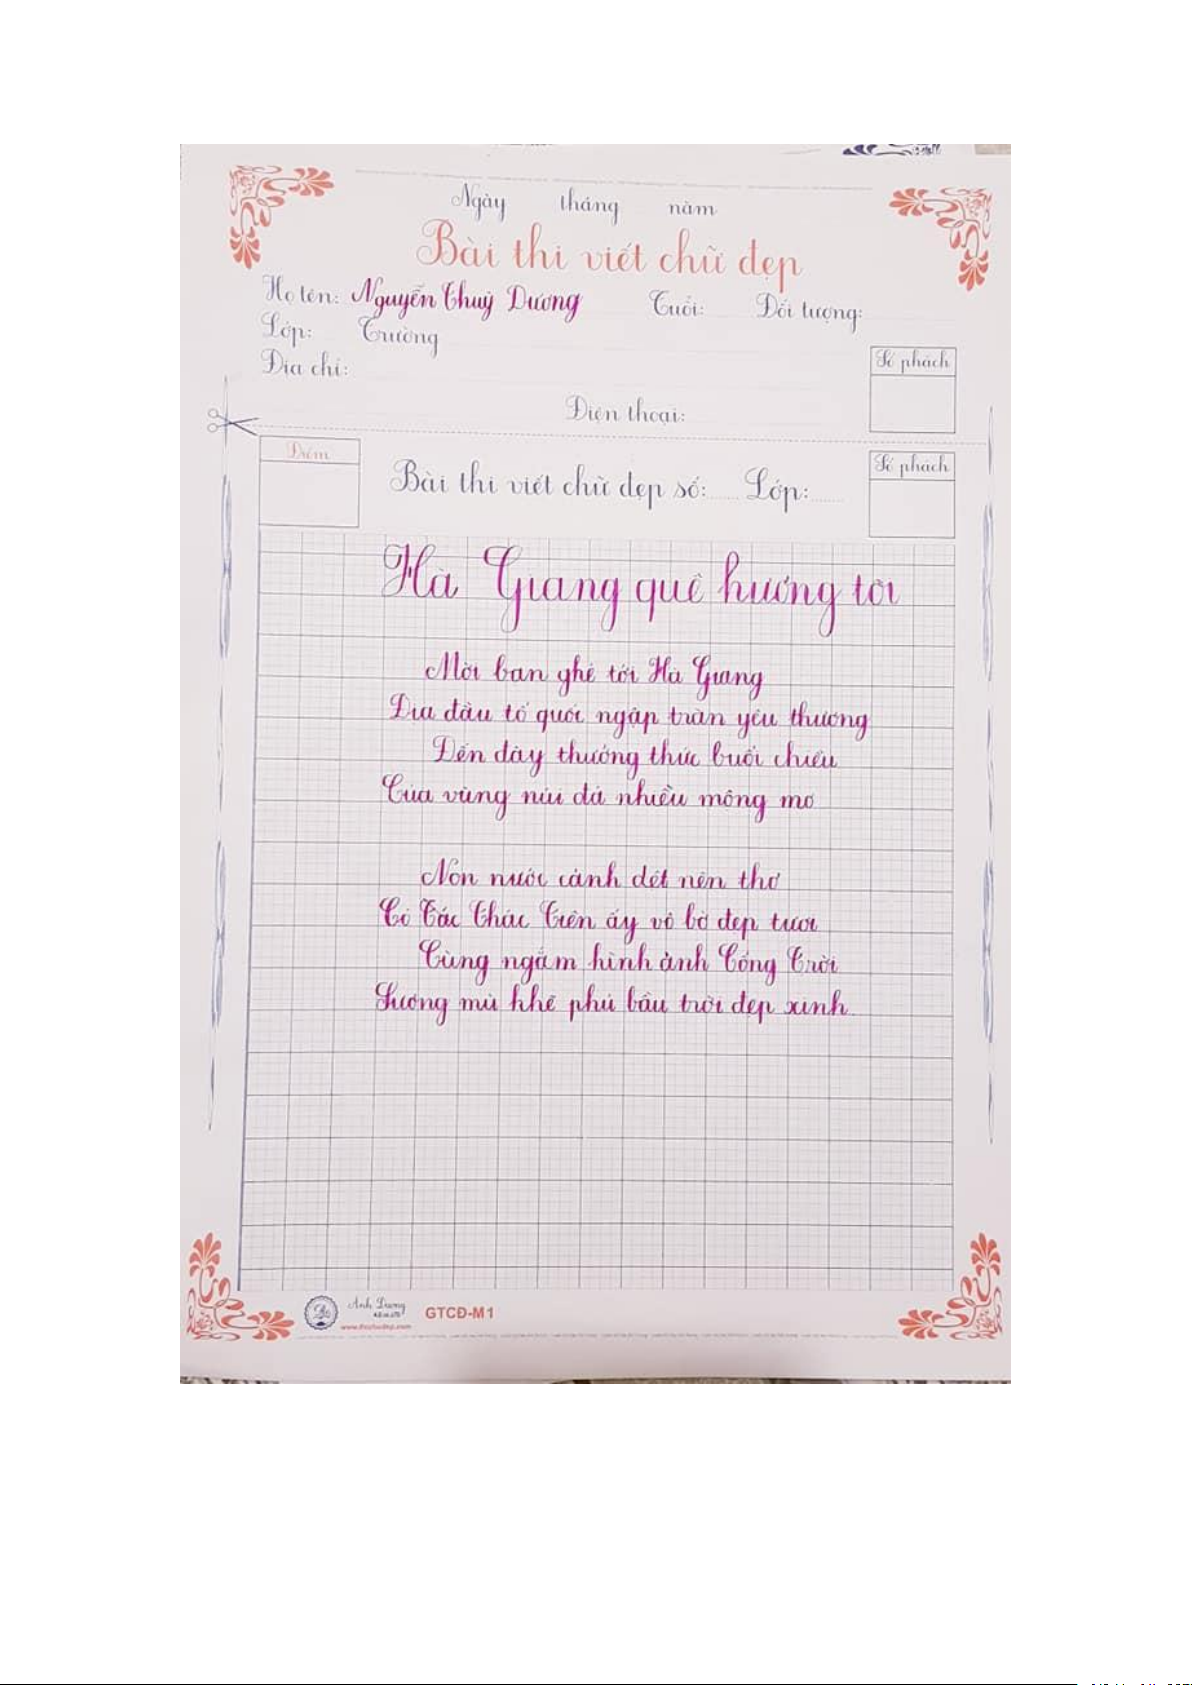 Ngày tháng năm
Bài thi viết chữ đẹp
Họ tên: Nguyễn Thuỳ Dương Tuổi: Đối tượng:
Lớp: Trường
Địa chỉ:
Số phách
Điện thoại:
Điểm
Số phách
Bài thi viết chữ đẹp số: Lớp:
Hà Giang quê hương tôi
Mời bạn ghé tới Hà Giang
Địa đầu tổ quốc ngập tràn yêu thương
Đến đây thưởng thức buổi chiều
Của vùng núi đá nhiều mộng mơ
Non nước cảnh dệt nên thơ
Có Bác Thác Tiên ấy vô bờ đẹp tươi
Cùng ngắm hình ảnh Cổng Trời
Sương mù khẽ phủ bầu trời đẹp xinh
Ánh Dương
www.thuphapdep.com
GTCĐ-M1